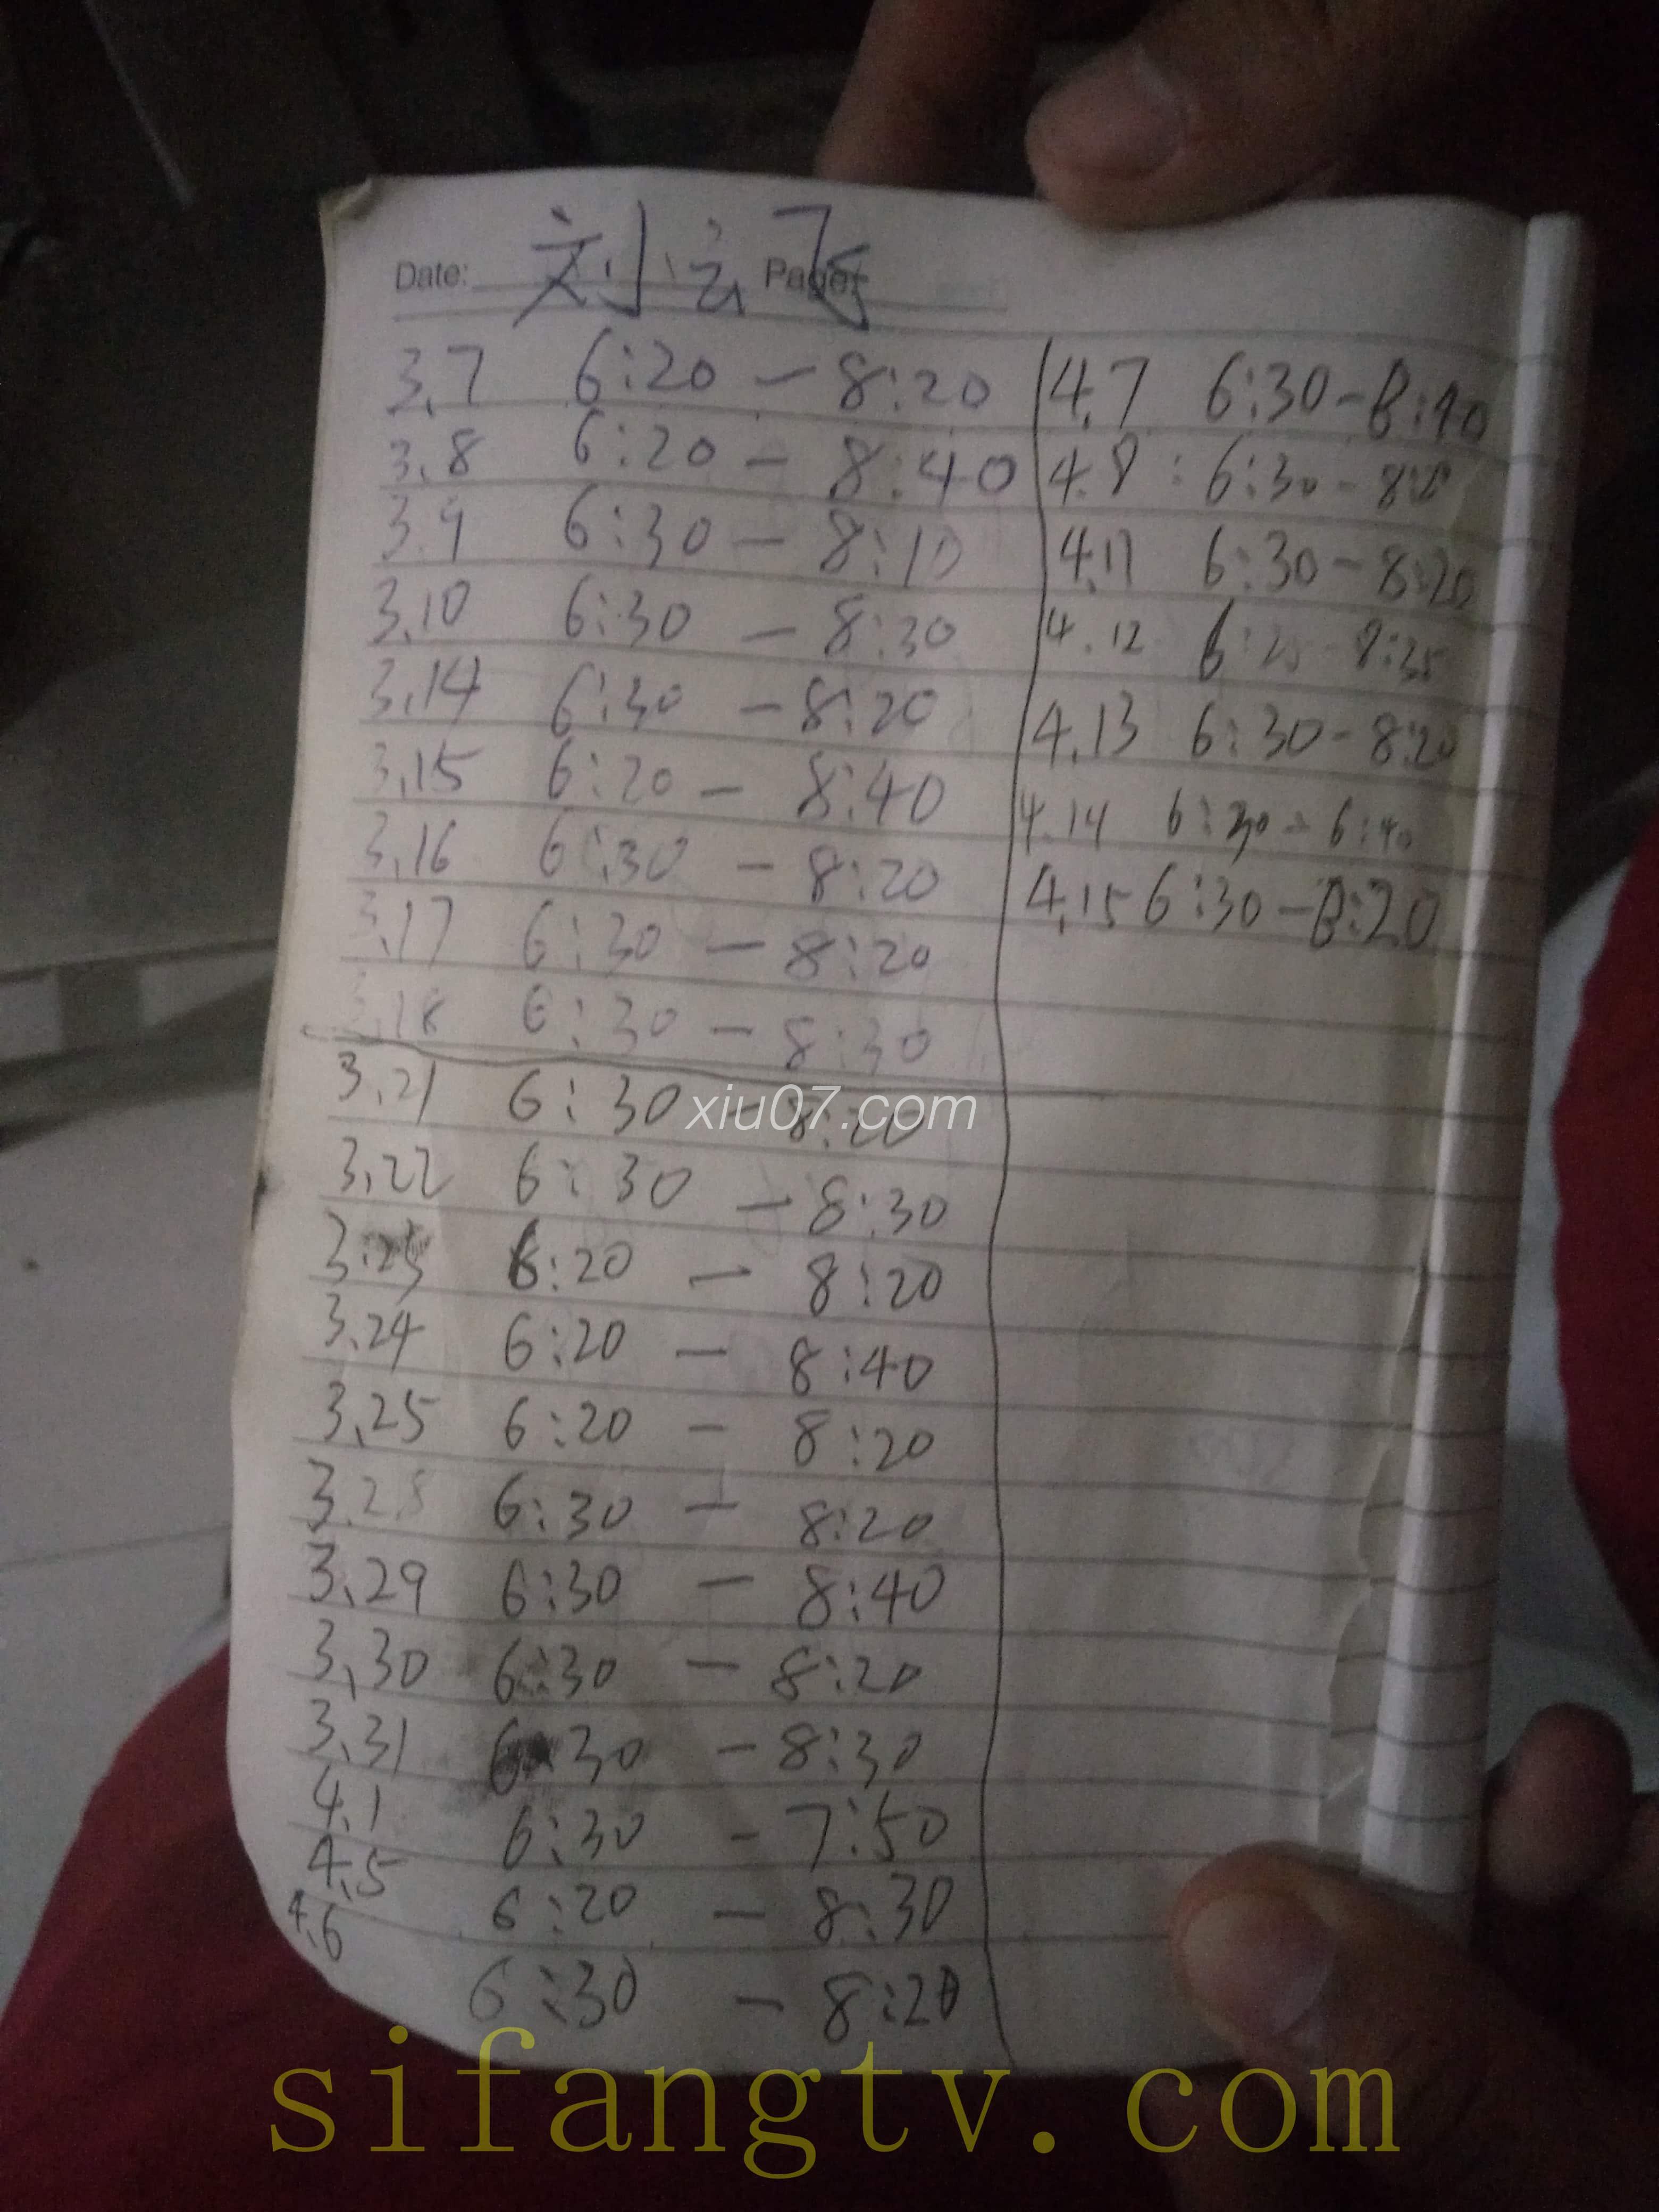 Date: 刘云飞 Page:
3.7 6:20 — 8:20
3.8 6:20 — 8:40
3.9 6:30 — 8:10
3.10 6:30 — 8:30
3.14 6:30 — 8:20
3.15 6:20 — 8:40
3.16 6:30 — 8:20
3.17 6:30 — 8:20
3.18 6:30 — 8:30
3.21 6:30 — 8:20
3.22 6:30 — 8:30
6:20 — 8:20
3.24 6:20 — 8:40
3.25 6:20 — 8:20
3.28 6:30 — 8:20
3.29 6:30 — 8:40
3.30 6:30 — 8:20
3.31 6:30 — 8:30
4.1 6:30 — 7:50
4.5 6:20 — 8:30
4.6 6:30 — 8:20
4.7 6:30 — 8:40
4.8 : 6:30 —
4.11 6:30 — 8:20
4.12 6:25 — 8:35
4.13 6:30 — 8:20
4.14 6:30 — 6:40
4.15 6:30 — 8:20
xiu07.com
sifangtv.com